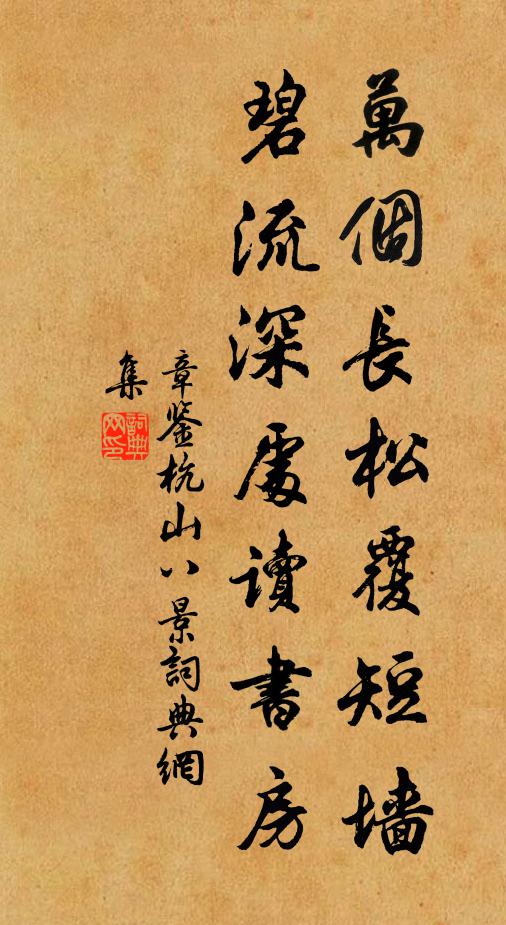 萬個長松覆短墻
碧流深處讀書房
章鉴杭山八景詞典網
集
詞典
网印